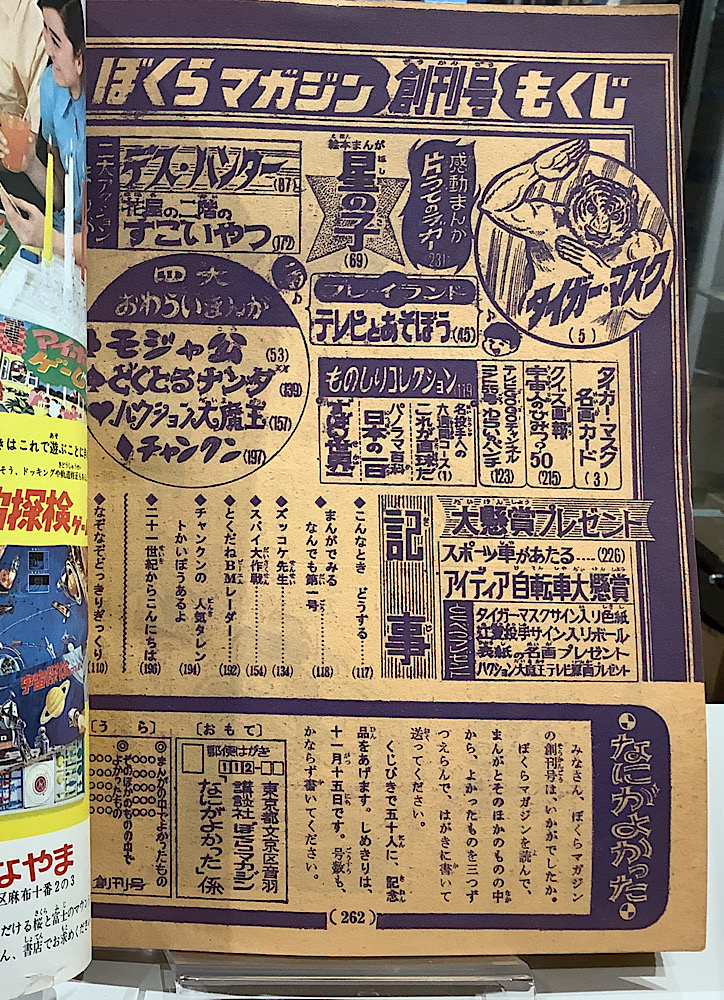 ぼくらマガジン 創刊号 もくじ
感動まんが
片うでのジガー 231
タイガー・マスク
(5)
絵本まんが
星の子
(69)
デス・ハンター(87)
花屋の二階の
すごいやつ(172)
四大
おわらいまんが
モジャ公(53)
どくとるナンダ(139)
ハクション大魔王(157)
チャンクン(197)
プレイランド
テレビとあそぼう(45)
ものしりコレクション 119
タイガー・マスク
名画カード(3)
クイズ画報
宇宙人のひみつ50(215)
(123)
名投手への
これが魔球だ
パノラマ百科
日本の一日
大懸賞プレゼント
スポーツ車があたる……(226)
アイディア自転車大懸賞
タイガーマスクサイン入り色紙
辻投手サイン入りボール
表紙の名画プレゼント
ハクション大魔王テレビ原画プレゼント
記事
◆こんなとき どうする……(117)
◆まんがでみる
なんでも第一号……(118)
◆ズッコケ先生……(134)
◆スパイ大作戦……(154)
◆とくだねBMレーダー……(192)
◆チャンクンの 人気タレン
トかいぼうあるよ……(194)
◆二十一世紀からこんにちは(196)
◆なぞなぞどっきりぎっくり(110)
なにがよかった
みなさん、ぼくらマガジン
の創刊号は、いかがでしたか。
ぼくらマガジンを読んで、
まんがとそのほかのものの中
から、よかったものを三つず
つえらんで、はがきに書いて
送ってください。
くじびきで五十人に、記念
品をあげます。しめきりは、
十一月十五日です。号数も、
かならず書いてください。
〔おもて〕
郵便はがき
112-
東京都文京区音羽
講談社 ぼくらマガジン
「なにがよかった」係
〔うら〕
◎まんがの中でよかったもの
◎そのほかのものの中で
よかったもの
創刊号
(262)
アイ
ゲーム
きはこれで遊ぶことに
そう、ドッキングや
宙探検ゲー
宇宙探検
なやま
区麻布十番2の3
だける桜と富士のマウン
ん、書店でお求めくださ